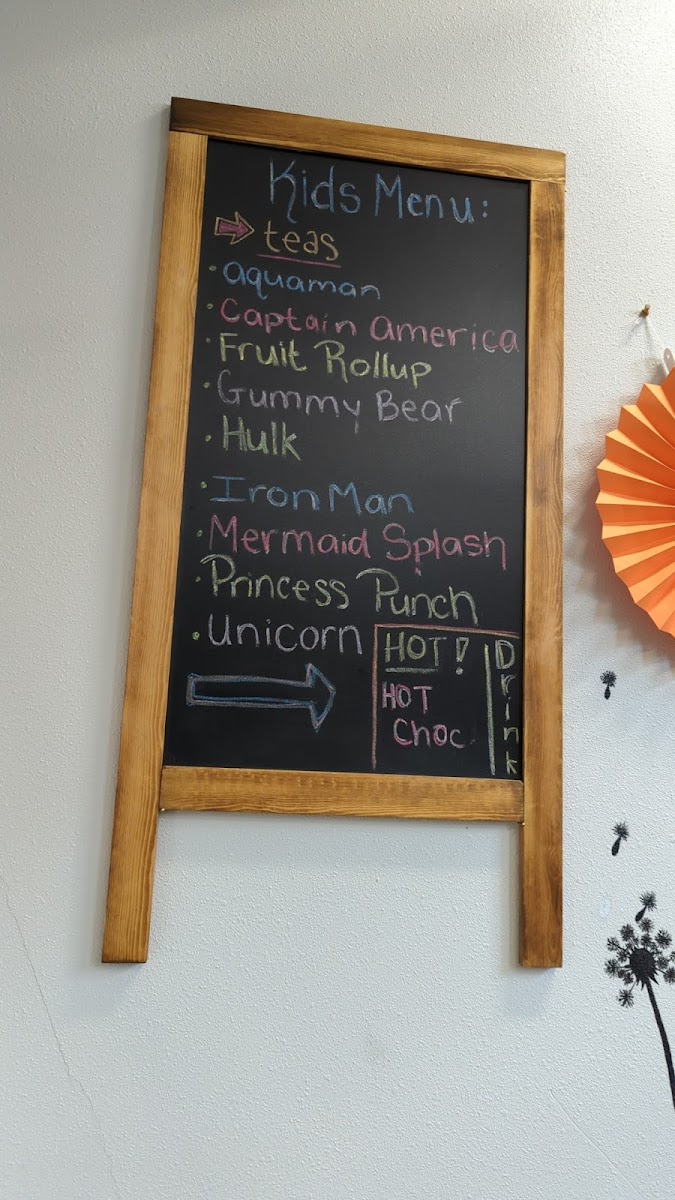 Kids Menu:
teas
• Aquaman
• Captain America
• Fruit Rollup
• Gummy Bear
• Hulk
• Iron Man
• Mermaid Splash
• Princess Punch
• Unicorn
HOT!
HOT
Choc
Drink